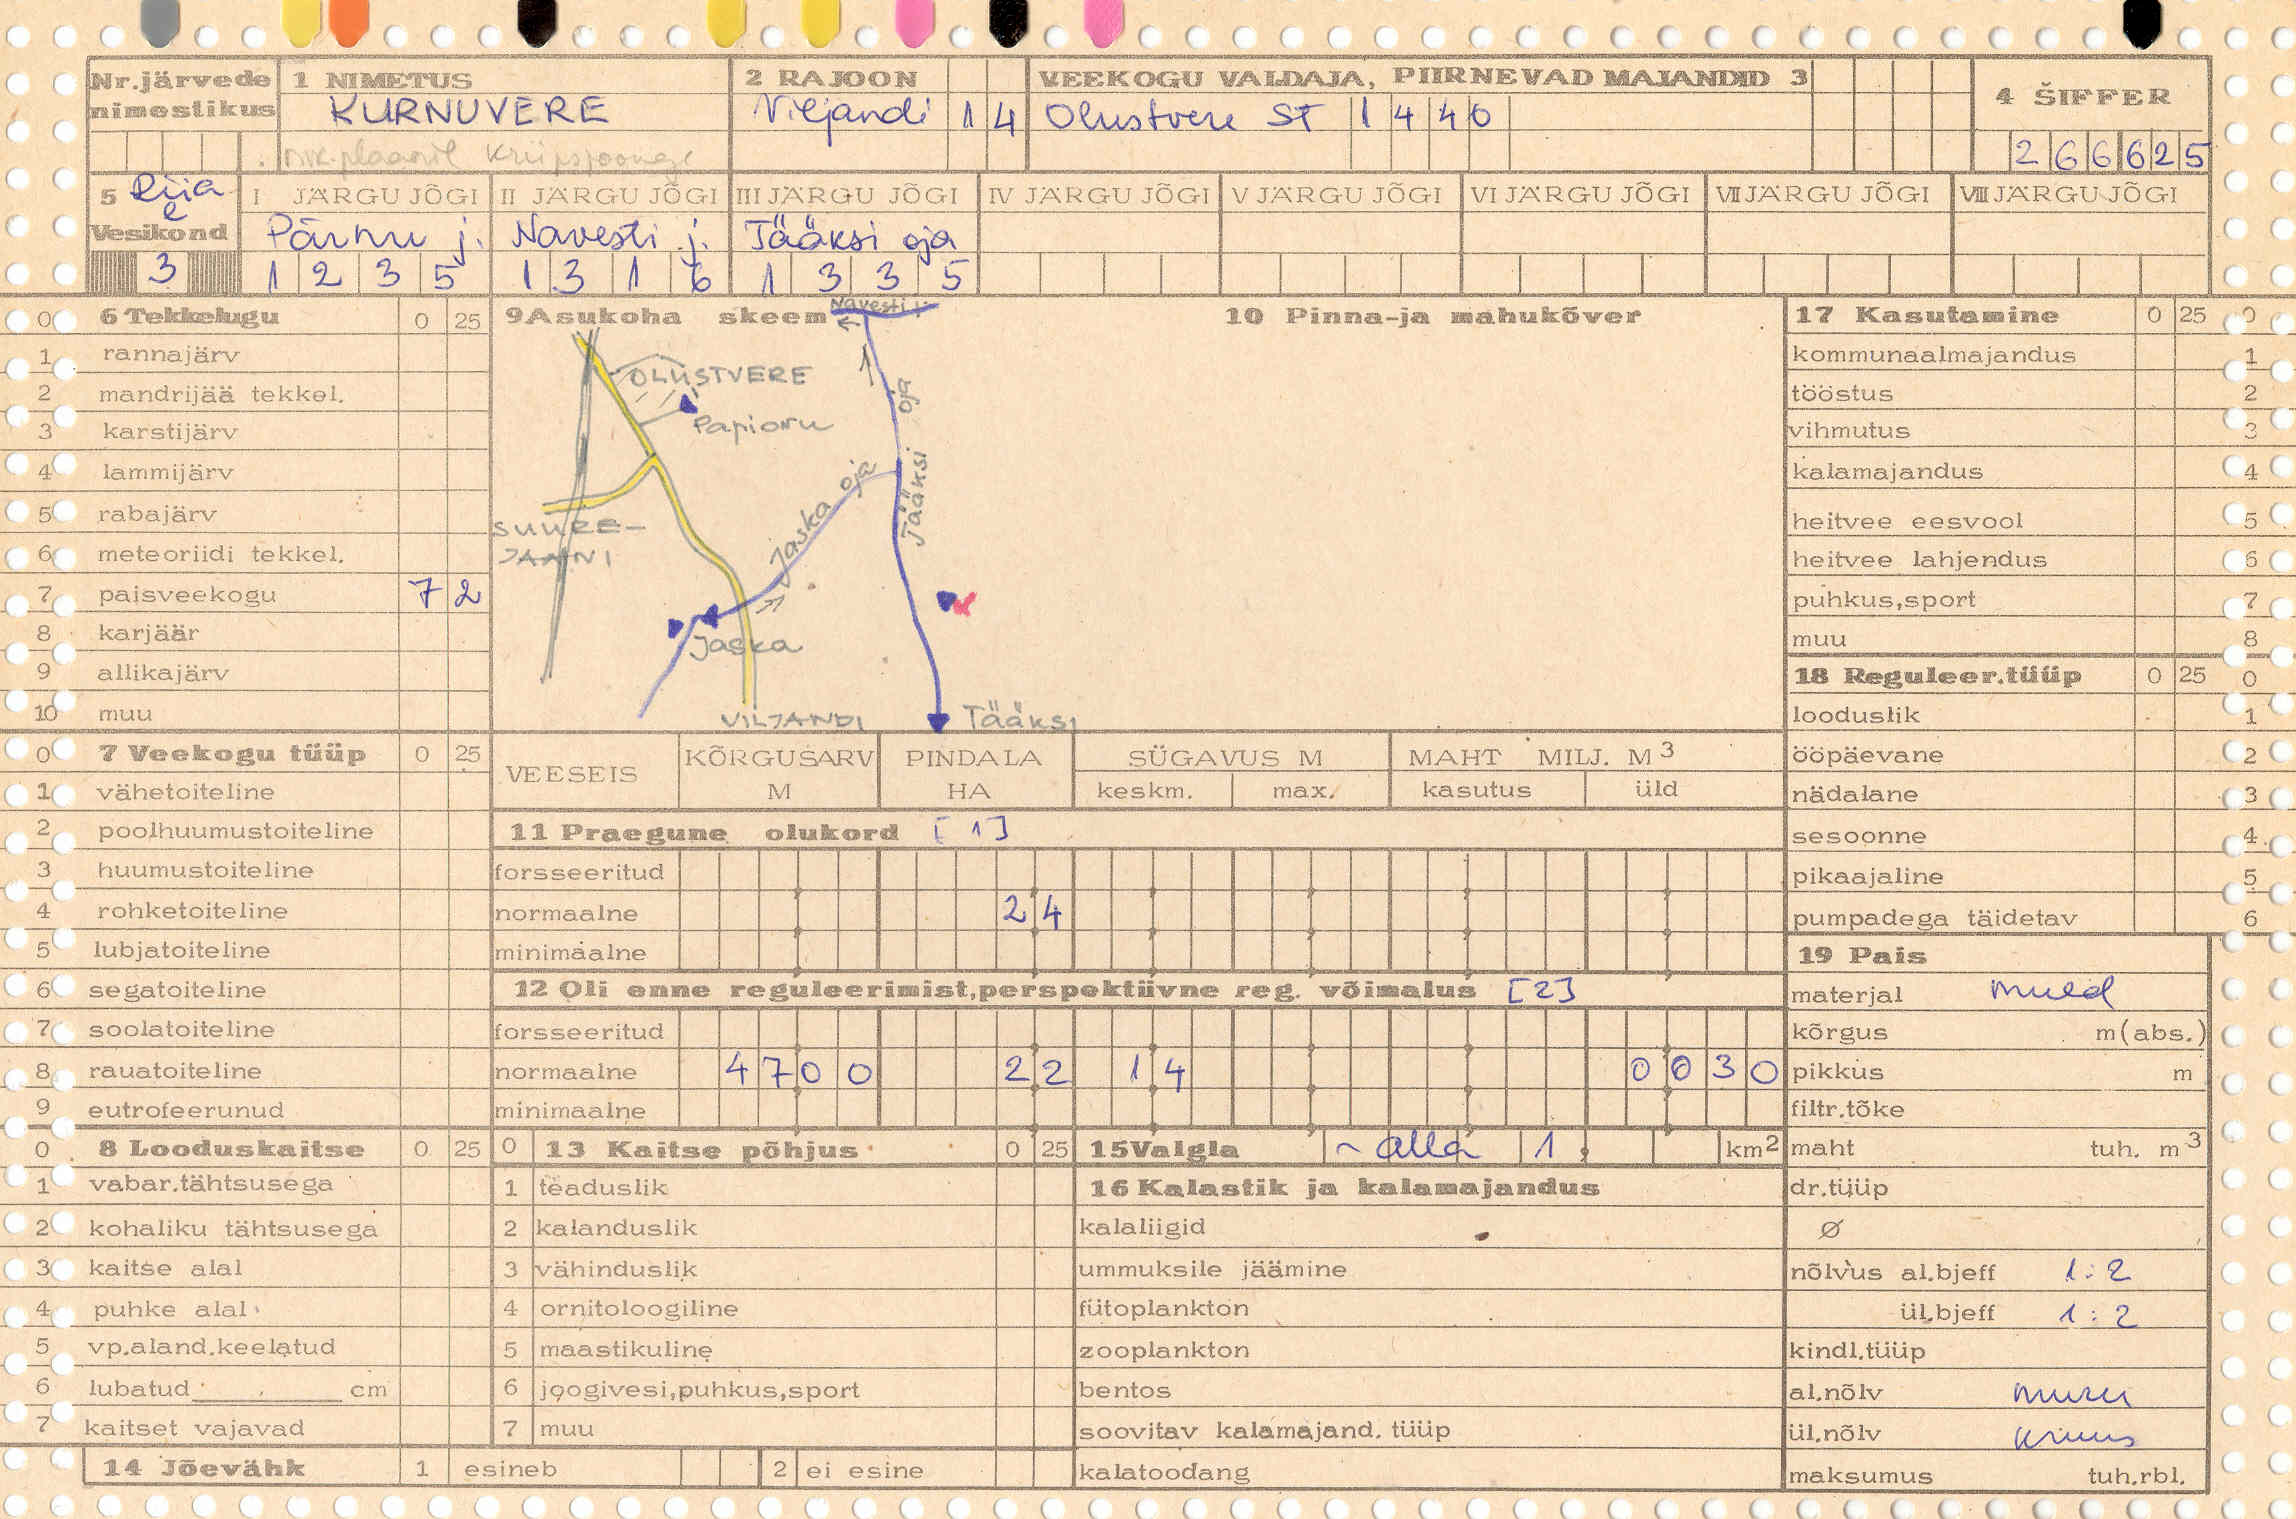 Nr.järvede nimestikus
1 NIMETUS
KURNUVERE
2 RAJOON
Viljandi 14
VEEKOGU VALDAJA, PIIRNEVAD MAJANDID 3
Olustvere ST 1440
4 ŠIFFER
266625
5 Riia
Vesikond
3
I JÄRGU JÕGI
Pärnu j.
1235
II JÄRGU JÕGI
Navesti j.
1316
III JÄRGU JÕGI
Tääksi oja
1335
IV JÄRGU JÕGI
V JÄRGU JÕGI
VI JÄRGU JÕGI
VII JÄRGU JÕGI
VIII JÄRGU JÕGI
0 6 Tekkelugu 0 25
1 rannajärv
2 mandrijää tekkel.
3 karstijärv
4 lammijärv
5 rabajärv
6 meteoriidi tekkel.
7 paisveekogu 7 2
8 karjäär
9 allikajärv
10 muu
0 7 Veekogu tüüp 0 25
1 vähetoiteline
2 poolhuumustoiteline
3 huumustoiteline
4 rohketoiteline
5 lubjatoiteline
6 segatoiteline
7 soolatoiteline
8 rauatoiteline
9 eutrofeerunud
0 8 Looduskaitse 0 25
1 vabar.tähtsusega
2 kohaliku tähtsusega
3 kaitse alal
4 puhke alal
5 vp.aland.keelatud
6 lubatud cm
7 kaitset vajavad
14 Jõevähk 1 esineb 2 ei esine
9 Asukoha skeem
Navesti j.
OLUSTVERE
Papioru
SUURE-
JAANI
Jaska oja
Tääksi oja
Jaska
VILJANDI
Tääksi
10 Pinna-ja mahukõver
VEESEIS
KÕRGUSARV M
PINDALA HA
SÜGAVUS M
keskm. max.
MAHT MILJ. M3
kasutus üld
11 Praegune olukord [1]
forsseeritud
normaalne 24
minimaalne
12 Oli enne reguleerimist,perspektiivne reg. võimalus [2]
forsseeritud
normaalne 4700 22 14 0030
minimaalne
0 13 Kaitse põhjus 0 25
1 teaduslik
2 kalanduslik
3 vähinduslik
4 ornitoloogiline
5 maastikuline
6 joogivesi,puhkus,sport
7 muu
15 Valgla ~ alla 1, km2
16 Kalastik ja kalamajandus
kalaliigid
ummuksile jäämine
fütoplankton
zooplankton
bentos
soovitav kalamajand. tüüp
kalatoodang
17 Kasutamine 0 25 0
kommunaalmajandus 1
tööstus 2
vihmutus 3
kalamajandus 4
heitvee eesvool 5
heitvee lahjendus 6
puhkus,sport 7
muu 8
18 Reguleer.tüüp 0 25 0
looduslik 1
ööpäevane 2
nädalane 3
sesoonne 4
pikaajaline 5
pumpadega täidetav 6
19 Pais
materjal muld
kõrgus m(abs.)
pikkus m
filtr.tõke
maht tuh. m3
dr.tüüp
Ø
nõlvus al.bjeff 1:2
ül.bjeff 1:2
kindl.tüüp
al.nõlv muru
ül.nõlv kruus
maksumus tuh.rbl.